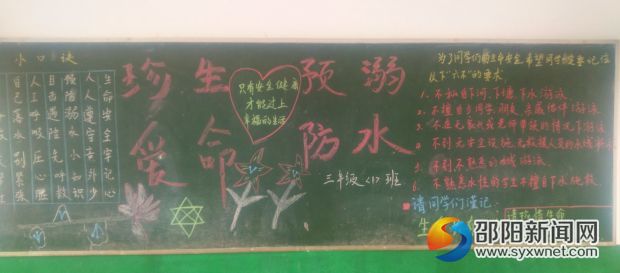 小口诀
生命安全牢记心
人工呼吸压心肺
自己落水别紧张
珍爱
生命
预防
溺水
只有安全健康
才能过上
幸福的生活
三年级<1>班
为了同学们的生命安全,希望同学们要记住
以下"六不"的要求:
1、不私自下河、下塘、下水游泳。
2、不擅自与同学、朋友、亲戚结伴游泳。
3、不在无家长或老师带领的情况下游泳。
4、不到无安全设施、无救援人员的水域游泳。
5、不到不熟悉的水域游泳。
6、不熟悉水性的学生不擅自下水施救。
请同学们谨记:
生
请珍惜生命
邵阳新闻网
www.syxwnet.com